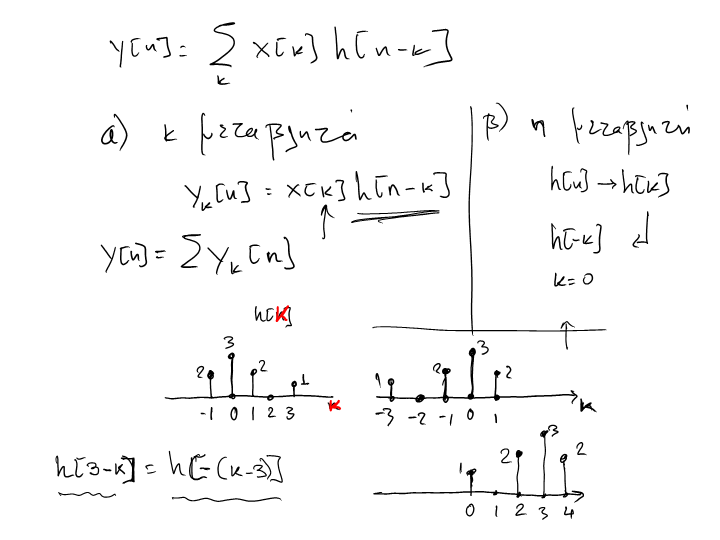 y[n] = Σ x[k] h[n-k]
k
α) k μεταβλητή
y_k[n] = x[k] h[n-k]
y[n] = Σ y_k[n]
β) n μεταβλητή
h[n] → h[k]
h[-k] ↲
k=0
h[k]
2 3 2 1
-1 0 1 2 3 k
1 2 3 2
-3 -2 -1 0 1 k
h[3-k] = h[-(k-3)]
1 2 3 2
0 1 2 3 4